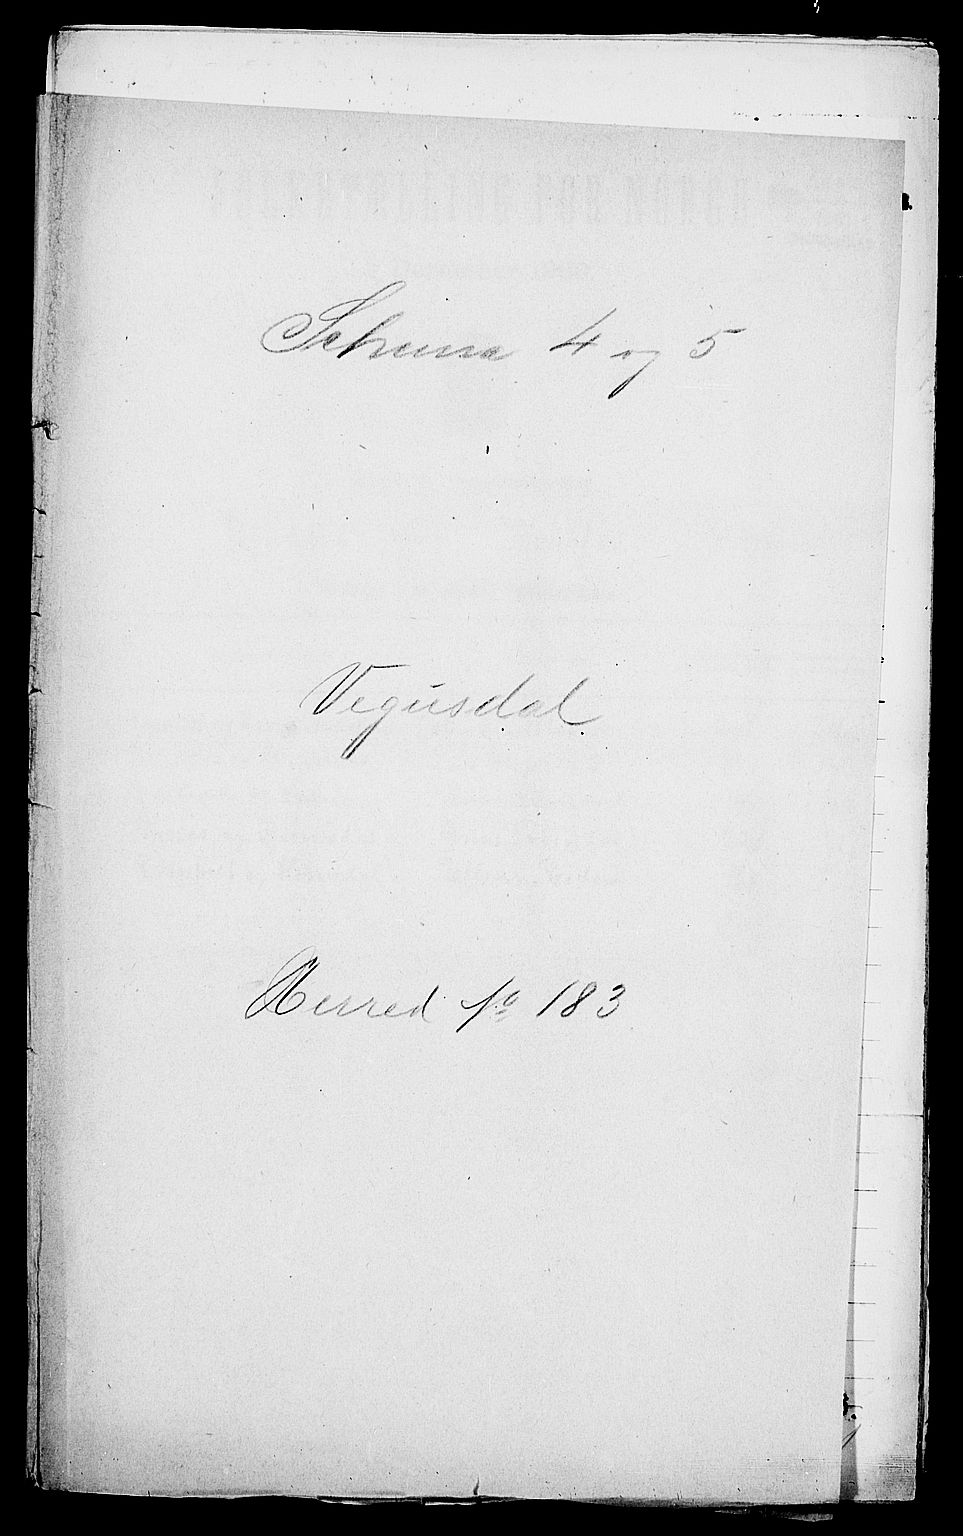 Schema 4 og 5
Vegusdal
Herred No 183